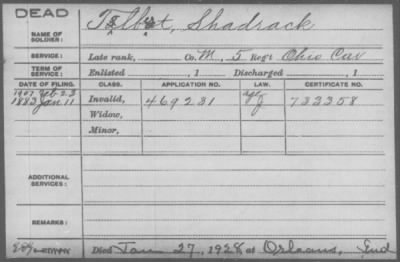 DEAD
NAME OF SOLDIER: Talbot, Shadrack
SERVICE: Late rank, Co. M, 5 Reg't Ohio Cav
TERM OF SERVICE: Enlisted , 1 Discharged , 1
DATE OF FILING. CLASS. APPLICATION NO. LAW. CERTIFICATE NO.
1907 Feb 23
1883 Jan 11 Invalid, 469281 733358
Widow,
Minor,
ADDITIONAL SERVICES:
REMARKS:
Died Jan 27, 1928 at Orleans, Ind